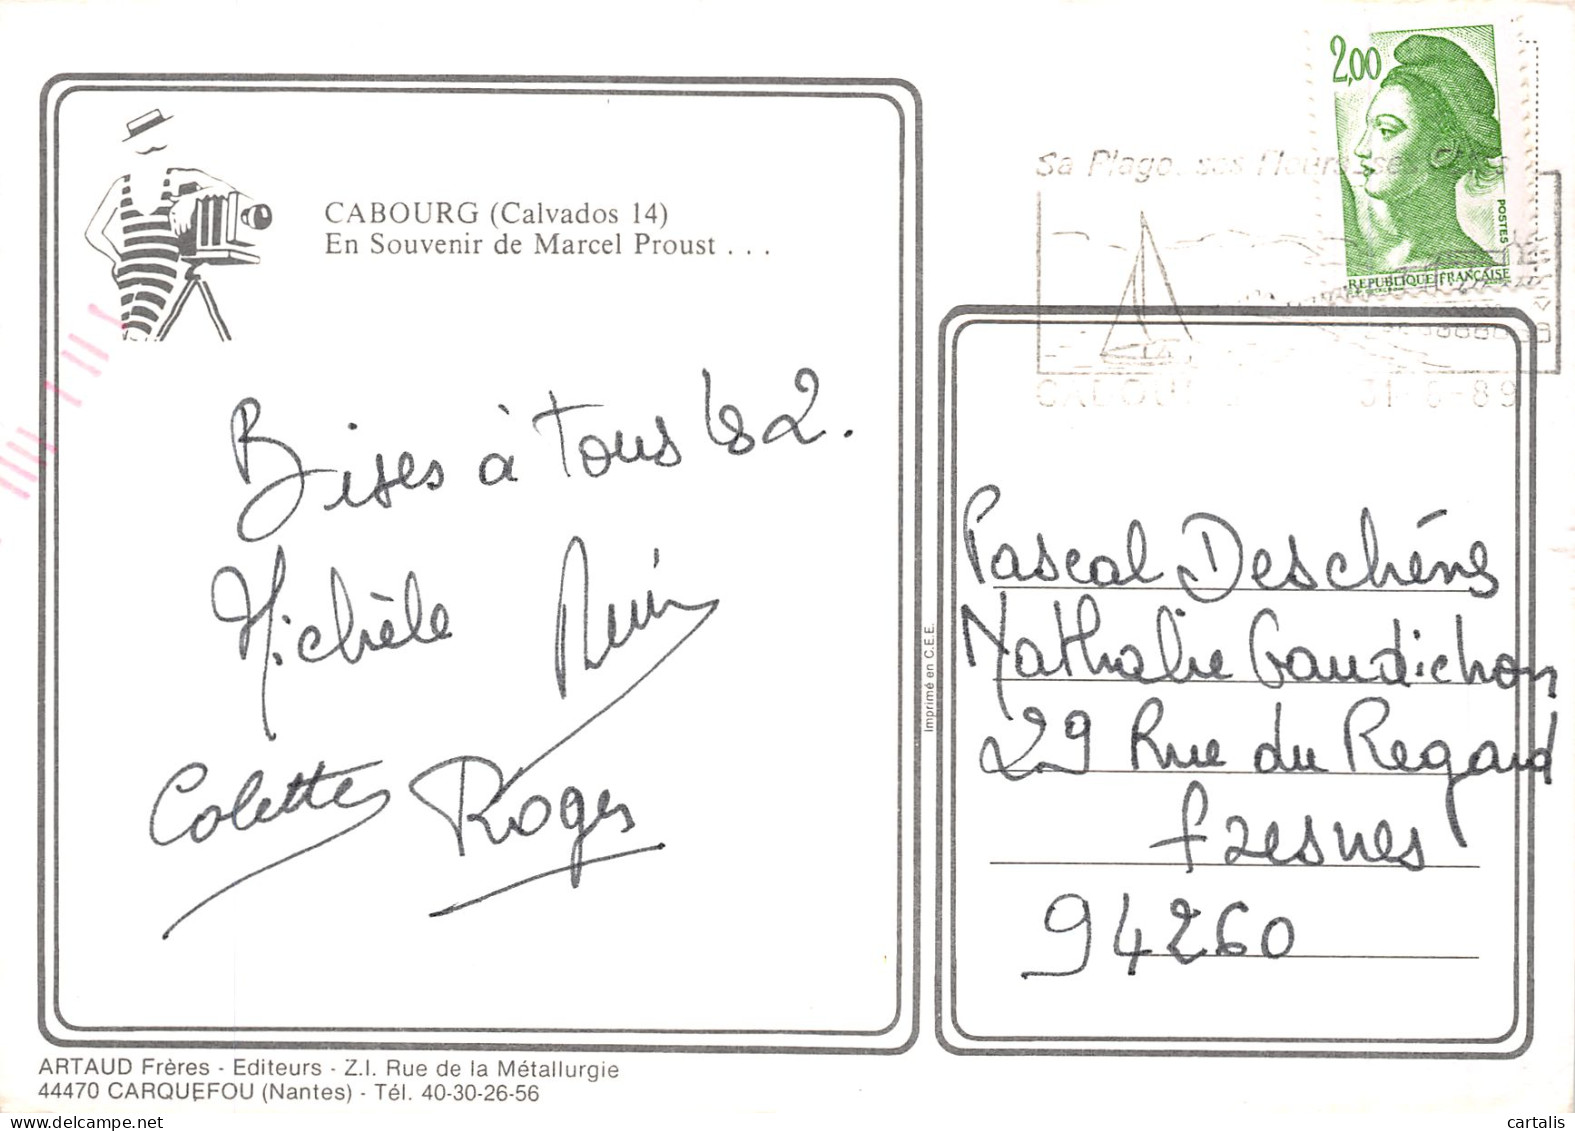 CABOURG (Calvados 14)
En Souvenir de Marcel Proust . . .
Bises à tous les 2.
Michèle
Colette Roger
ARTAUD Frères - Editeurs - Z.I. Rue de la Métallurgie
44470 CARQUEFOU (Nantes) - Tél. 40-30-26-56
Imprimé en C.E.E.
2,00
POSTES
REPUBLIQUE FRANÇAISE
Sa Plage, ses fleurs, ses
-89
Pascal Deschéns
Nathalie Gaudichon
29 Rue du Regard
fresnes
94260
cartalis
delcampe.net